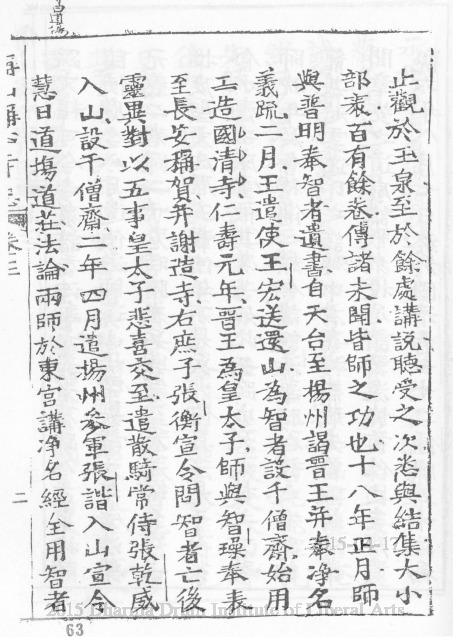 止觀於玉泉至於餘處講說聽受之次悉與結集大小
部袠百有餘卷傳諸未聞皆師之功也十八年正月師
與普明奉智者遺書自天台至楊州謁晉王并奉淨名
義疏二月王遣使王宏送還山為智者設千僧齋始用
工造國清寺仁壽元年晉王為皇太子師與智璪奉表
至長安稱賀并謝造寺右庶子張衡宣令問智者亡後
靈異對以五事皇太子悲喜交至遣散騎常侍張乾威
入山設千僧齋二年四月遣揚州參軍張諧入山宣令
慧日道場道莊法論兩師於東宮講淨名經全用智者
卷三
二
63
2015 Dharma Drum Institute of Liberal Arts